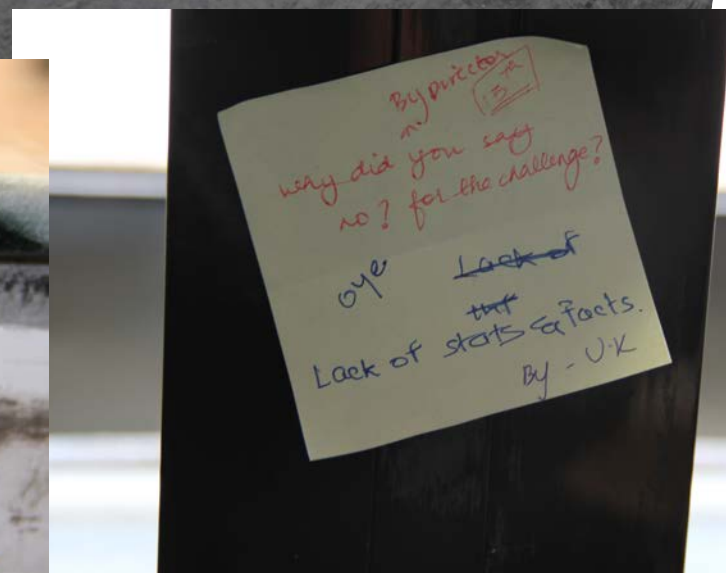 By Director
why did you say
no? for the challenge?
oye Lack of
Lack of stats & Facts.
By - U.K